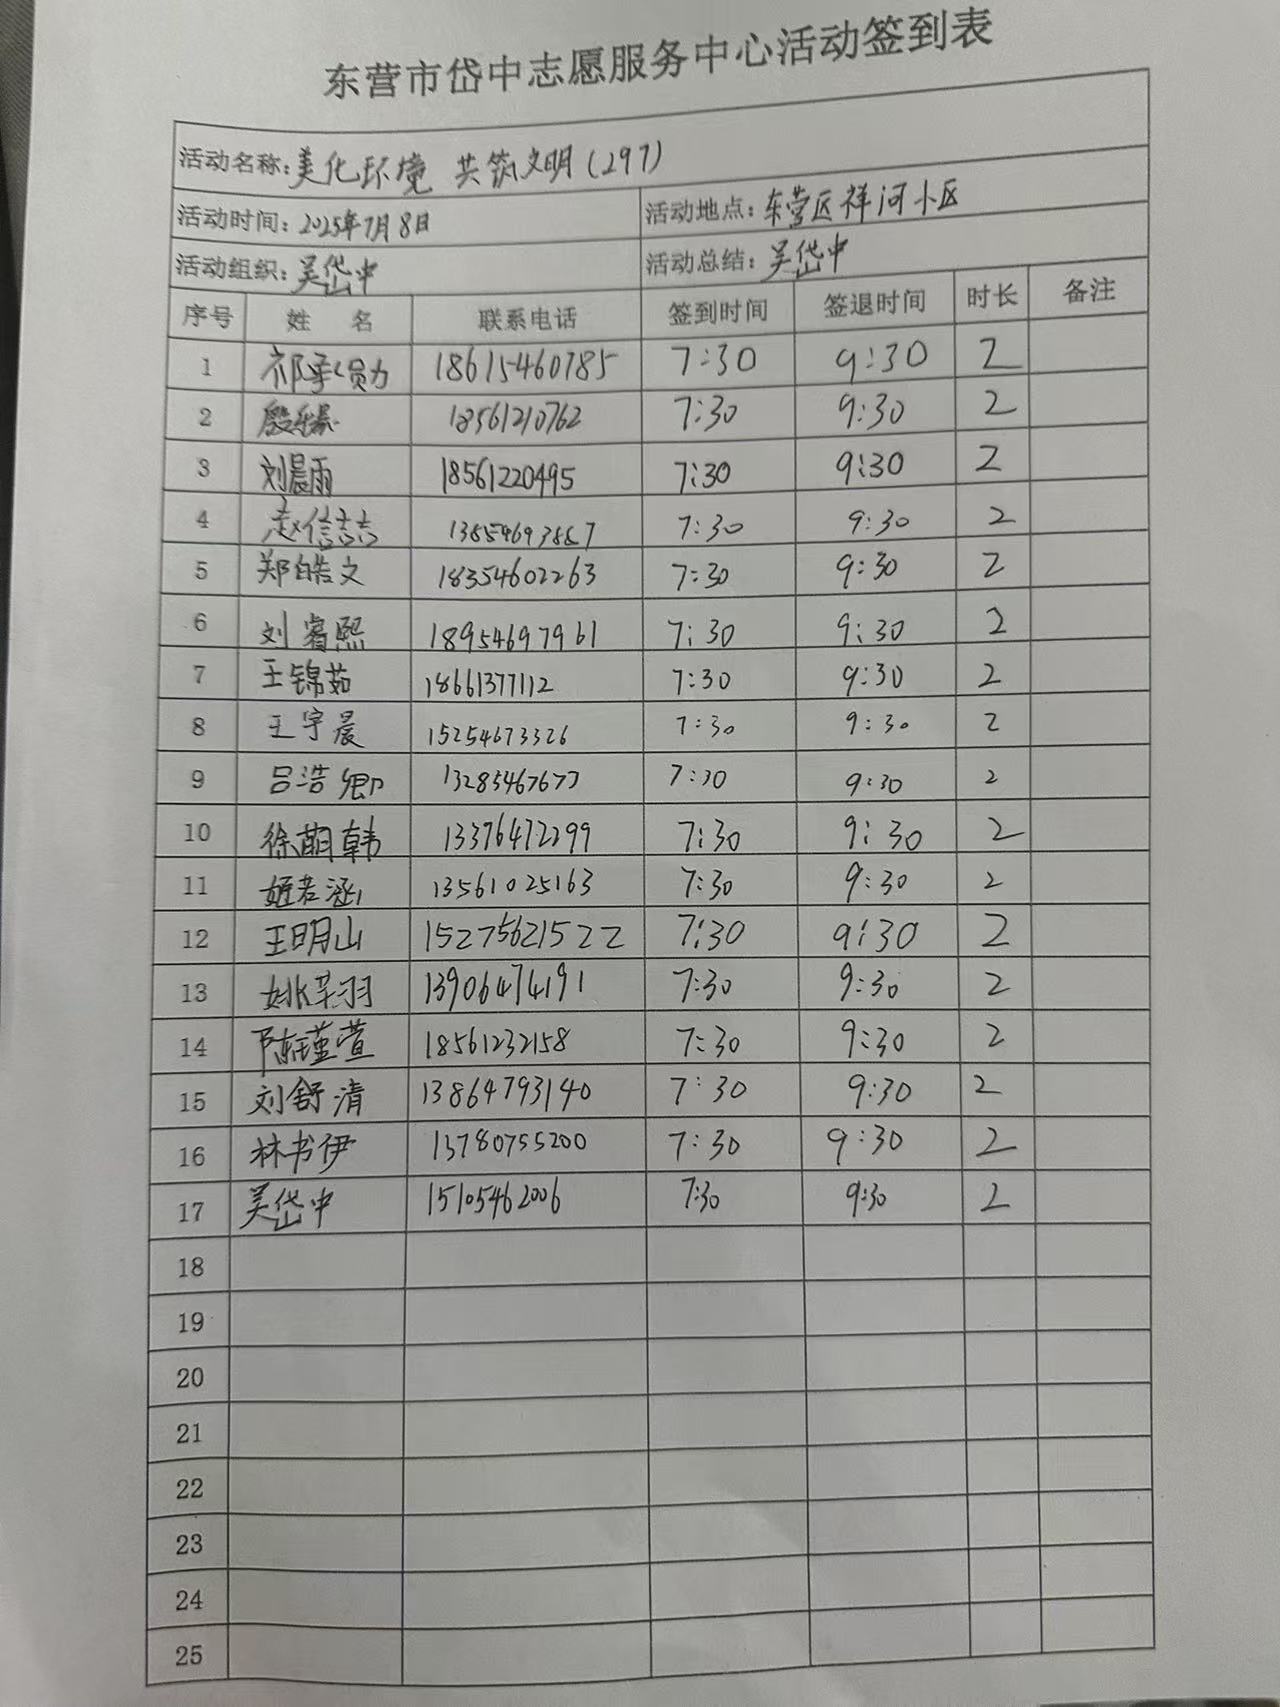 东营市岱中志愿服务中心活动签到表
活动名称：美化环境 共筑文明（297）
活动时间：2025年7月8日 活动地点：东营区祥河小区
活动组织：吴岱中 活动总结：吴岱中
序号 姓 名 联系电话 签到时间 签退时间 时长 备注
1 18615460785 7:30 9:30 2
2 18561210762 7:30 9:30 2
3 刘晨雨 18561220495 7:30 9:30 2
4 赵信喆 7:30 9:30 2
5 郑皓文 18354602263 7:30 9:30 2
6 刘睿熙 18954697961 7:30 9:30 2
7 王锦茹 18661377112 7:30 9:30 2
8 王宇晨 15254673326 7:30 9:30 2
9 吕浩卿 7:30 9:30 2
10 徐萌韩 13376472299 7:30 9:30 2
11 姬若涵 13561025163 7:30 9:30 2
12 王明山 15275621522 7:30 9:30 2
13 13906474191 7:30 9:30 2
14 陈瑾萱 18561232158 7:30 9:30 2
15 刘舒清 13864793140 7:30 9:30 2
16 林书伊 13780755200 7:30 9:30 2
17 吴岱中 15105462006 7:30 9:30 2
18
19
20
21
22
23
24
25